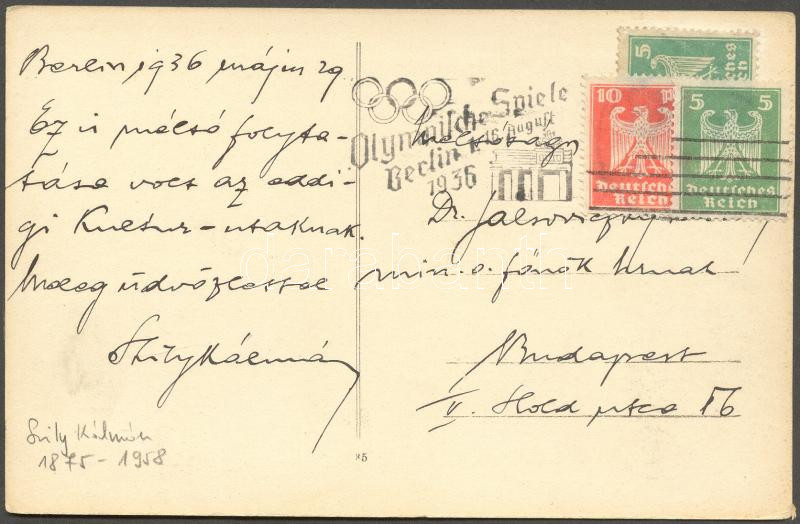 Berlin 1936 május 29
Ez is méltó folyta-
tása volt az eddi-
gi Kultur-utaknak.
Meleg üdvözlettel
Szily Kálmán
Szily Kálmán
1875 - 1958
Olympische Spiele
1.-16. August
Berlin
1936
5
10
Deutsches
Reich
5 5
Deutsches
Reich
Méltóságos
Dr.
min. o. főnök úrnak
Budapest
V. Hold utca 16
darabanth